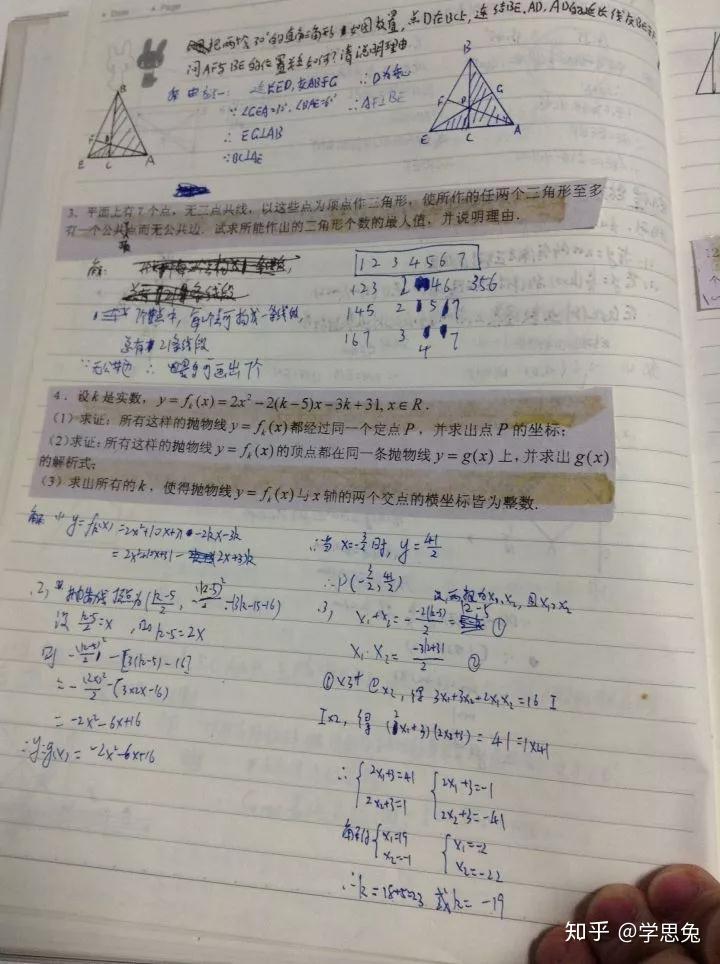 把两个30°的直角三角形如图放置,点D在BC上,连结BE,AD,AD的延长线交BE于
问AF与BE的位置关系如何?请说明理由
连长ED,交AB于G
∴D为
∴AF⊥BE
∴EG⊥AB
∵BC⊥AE
B
F
D
E
C
A
B
F
G
D
E
C
A
3. 平面上有7个点,无三点共线,以这些点为顶点作三角形,使所作的任两个三角形至多
有一个公共点而无公共边.试求所能作出的三角形个数的最大值,并说明理由.
解:
1 2 3 4 5 6 7
123 2 46 356
145 2 5 7
167 3 4 7
总有21条线段
∵无公共边 ∴ 画出7个
4. 设k是实数,y=f_k(x)=2x²-2(k-5)x-3k+31, x∈R.
(1)求证:所有这样的抛物线y=f_k(x)都经过同一个定点P,并求出点P的坐标;
(2)求证:所有这样的抛物线y=f_k(x)的顶点都在同一条抛物线y=g(x)上,并求出g(x)
的解析式;
(3)求出所有的k,使得抛物线y=f_k(x)与x轴的两个交点的横坐标皆为整数.
解 (1) y=f_k(x)=2x²+10x+31-2kx-3k
∴当x=-3/2时, y=41/2
∴P(-3/2, 41/2)
(2) 抛物线顶点为(k-5/2, -(k-5)²/2-(3k-15-16)
设 k-5/2=x, 则k-5=2x
则 -(k-5)²/2-[3(k-5)-16]
=-(2x)²/2-(3×2x-16)
=-2x²-6x+16
∴y=g(x)=-2x²-6x+16
3, x₁+x₂=--2(k-5)/2=k-5 ①
x₁·x₂=-3k+31/2 ②
①×3+②×2,得 3x₁+3x₂+2x₁x₂=16 I
I×2,得 (2x₁+3)(2x₂+3)=41=1×41
∴{2x₁+3=41 {2x₁+3=-1
2x₂+3=1 2x₂+3=-41
解得{x₁=19 {x₁=-2
x₂=-1 x₂=-22
∴k=18+5=23 或k=-19
知乎 @学思兔